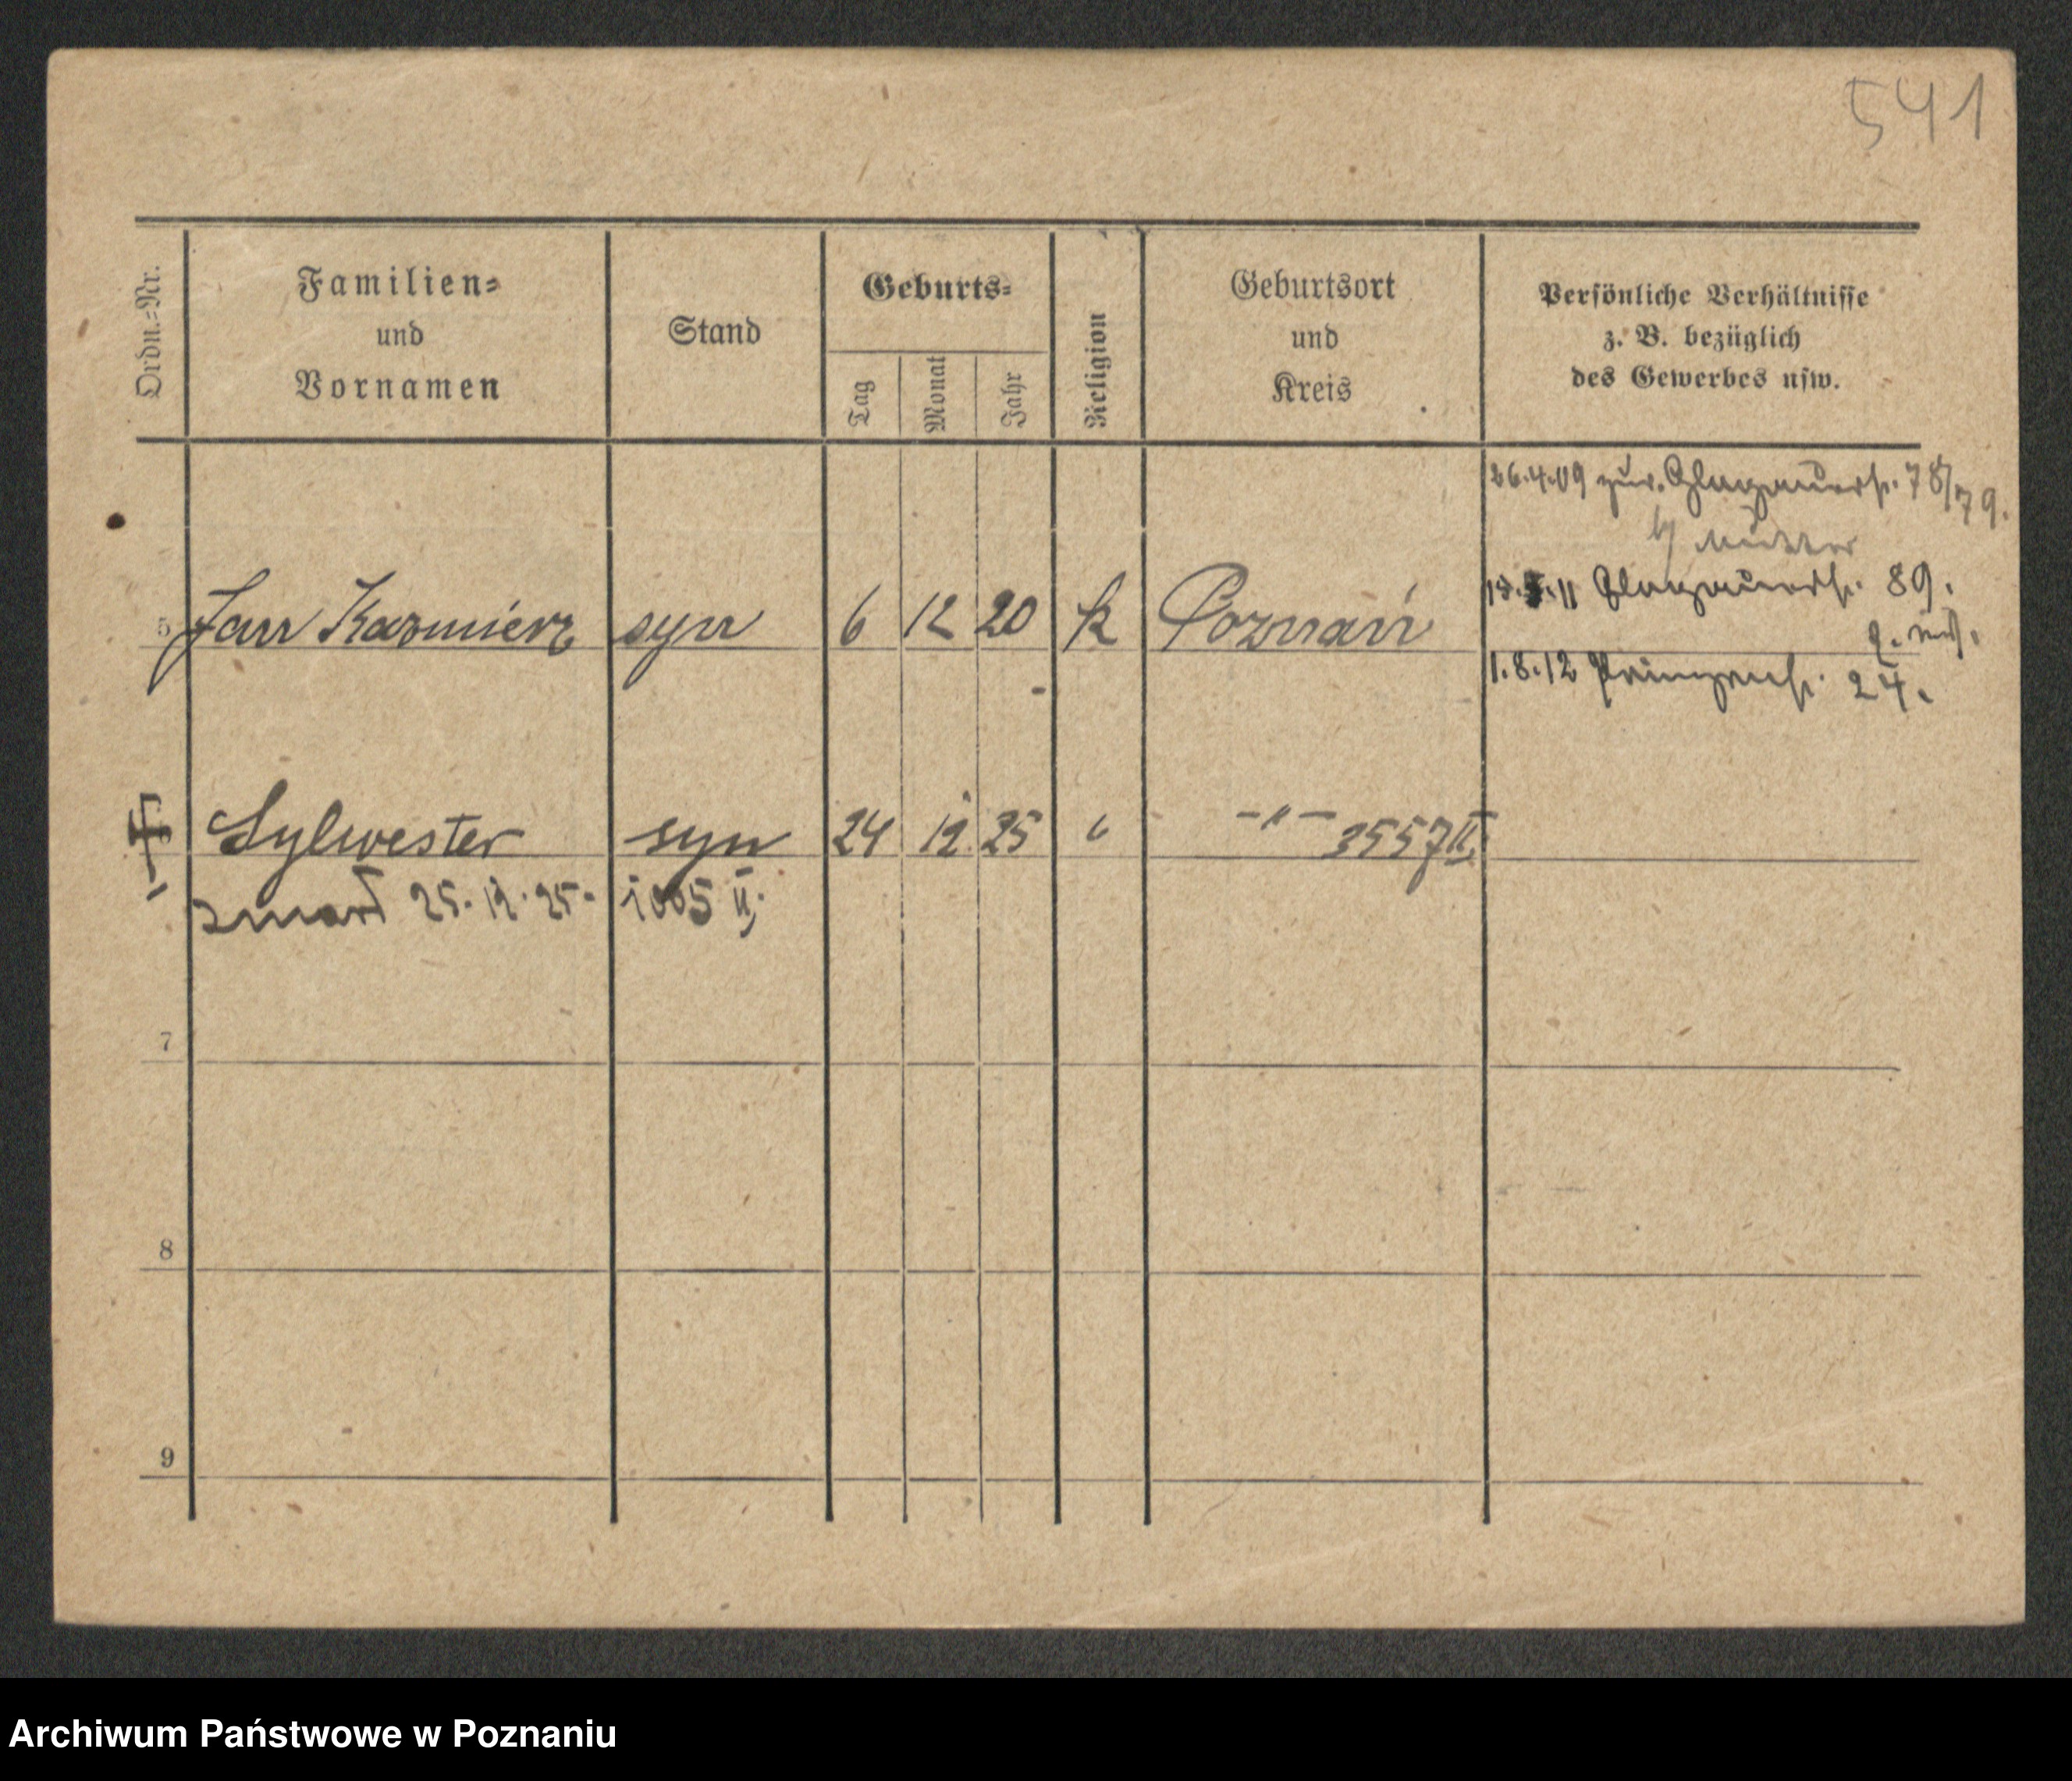 541
Ordn.-Nr.
Familien-
und
Vornamen
Stand
Geburts-
Tag
Monat
Jahr
Religion
Geburtsort
und
Kreis
Persönliche Verhältnisse
z. B. bezüglich
des Gewerbes usw.
26.4.09 zur. Glogauerstr. 78/79.
b/ Mutter
11 Glogauerstr. 89.
5 Jan Kazmierz syn 6 12 20 k Poznań
1.8.12 Prinzenstr. 24.
Sylwester syn 24 12 25 " -"- 3557 II
zmarł 25.12.25. 1005 II
7
8
9
Archiwum Państwowe w Poznaniu